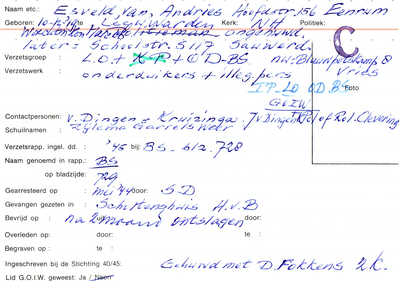 Naam etc.: Esveld, van, Andries Hoofdstr 156 Eenrum
Geboren: 10-12-19 Leeuwarden Kerk: NH Politiek:
ongehuwd.
later = Schoolstr. 5117 Sauwerd. C
Verzetsgroep L.O + K.P + OD-BS nu: Blauwpotskamp 8
Verzetswerk : onderduikers + illeg. pers Vries
I.P-LO OD.BS Foto
G.v.W.
Contactpersonen: v. Dingen + Kruizinga
Schuilnamen Zylema Garrelsweer
Verzetsrap. ingel. dd. : '45 bij: BS- 612.728
Naam genoemd in rapp.: BS
op bladzijde: 729
Gearresteerd op : mei '44 door: SD
Gevangen gezeten in : Scholtenshuis H.v.B
Bevrijd op : na 2 maand ontslagen door:
Overleden op: : te:
Begraven op : te :
Ingeschreven bij de Stichting 40/45: Gehuwd met D. Fokkens 2k.
Lid G.O.I.W. geweest: Ja / Neen